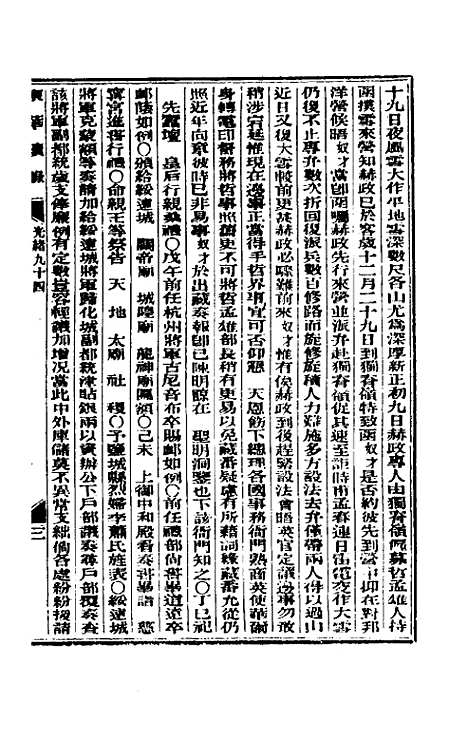 十九日夜風雪大作平地雪深數尺各山尤為深厚新正初九日赫政專人由獨脊嶺偕哲孟雄人持
函撲雪來營知赫政已於客歲十二月二十九日到獨脊嶺特致函奴才是否約彼先到營中抑在對邦
洋營候晤奴才當即函囑赫政先行來營並派弁赴獨脊嶺促其速至詎時雨孟春連日雷電交作大雪
仍復不止專弁數次折回復派兵數百修路而旋修旋積人力難施多方設法去弁僅帶兩人得以過山
近日又復大雪較前更甚赫政必艱難前來奴才惟有俟赫政到後趕緊設法會晤英官定議邊事勿敢
稍涉宕延惟現在邊事正當得手哲界事宜可否仰懇　天恩飭下總理各國事務衙門熟商英使華爾
身轉電印督務將哲事照舊更不可將哲孟雄部長稍有更易以免藏番疑慮有所藉詞緣藏番尤從仍
照近年向章彼時已非易事奴才於出藏奏報即已陳明諒在　聖明洞鑒也下該衙門知之〇丁巳祀
先蠶壇　皇后行親桑禮〇戊午前任杭州將軍古尼音布卒賜卹如例〇前任禮部尚書畢道遠卒
卹蔭如例〇頒給綏遠城　關帝廟　城隍廟　龍神廟匾額〇己未　上御中和殿看奏書畢詣　慈
寧宮進書行禮〇命親王等祭告　天　地　太廟　社　稷〇予鹽城縣烈婦李蕭氏旌表〇綏遠城
將軍克蒙額等奏請加給綏遠城將軍歸化城副都統津貼銀兩以資辦公下戶部議奏尋戶部覆奏查
該將軍副都統歲支俸廉例有定數豈容輕議加增況當此中外庫儲莫不異常支絀倘各處紛紛援請
東華續錄　光緒九十四　三